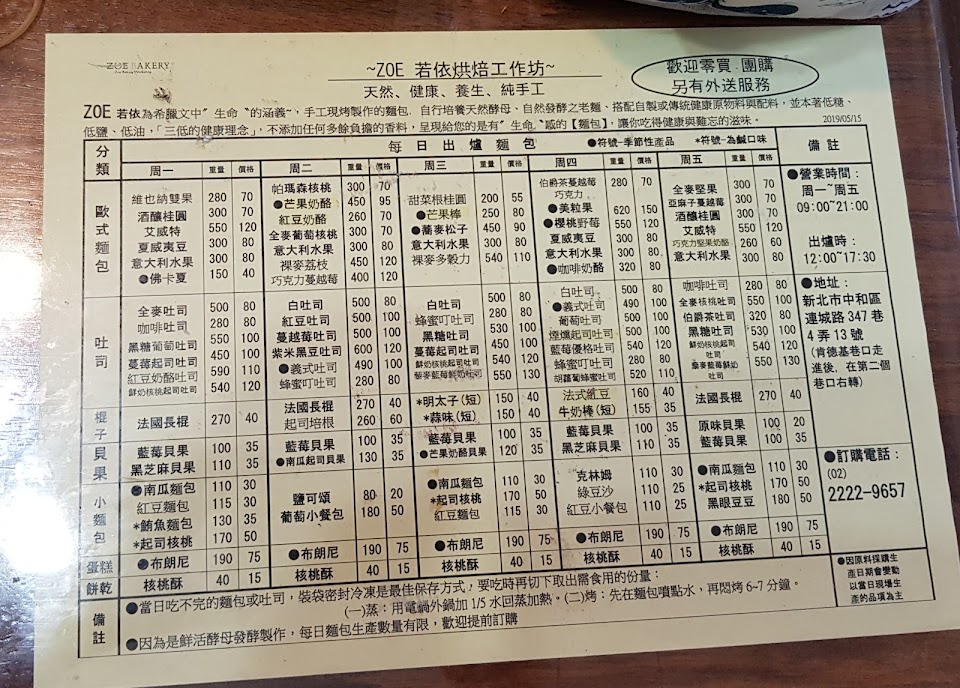 ZOE BAKERY
~ZOE 若依烘焙工作坊~
天然、健康、養生、純手工
歡迎零買．團購
另有外送服務
ZOE 若依為希臘文中〝生命〞的涵義〝，手工現烤製作的麵包，自行培養天然酵母、自然發酵之老麵、搭配自製或傳統健康原物料與配料，並本著低糖、
低鹽、低油，「三低的健康理念」，不添加任何多餘負擔的香料，呈現給您的是有〝生命〞感的【麵包】，讓你吃得健康與難忘的滋味。
2019/05/15
分類 每日出爐麵包 ●符號-季節性產品 *符號-為鹹口味 備註
周一 重量 價格 周二 重量 價格 周三 重量 價格 周四 重量 價格 周五 重量 價格
歐式麵包
維也納雙果 280 70
酒釀桂圓 300 70
艾威特 550 120
夏威夷豆 300 80
意大利水果 300 80
●佛卡夏 150 40
帕瑪森核桃 300 70
●芒果奶酪 450 95
紅豆奶酪 260 70
全麥葡萄核桃 300 70
意大利水果 300 80
裸麥荔枝 450 120
巧克力蔓越莓 400 120
甜菜根桂圓 200 55
●芒果棒 250 80
●蕎麥松子 450 90
意大利水果 300 80
裸麥多穀力 540 110
伯爵茶蔓越莓 280 70
巧克力
●美粒果 620 150
●櫻桃野莓 550 120
夏威夷豆 300 80
意大利水果 300 80
●咖啡奶酪 320 80
全麥堅果 300 70
亞麻子蔓越莓 300 70
酒釀桂圓 300 70
艾威特 550 120
巧克力堅果奶酪 260 60
意大利水果 300 80
吐司
全麥吐司 500 80
咖啡吐司 280 80
黑糖葡萄吐司 550 100
蔓莓起司吐司 450 100
紅豆奶酪吐司 590 110
鮮奶核桃起司吐司 540 120
白吐司 500 80
紅豆吐司 500 100
蔓越莓吐司 500 100
紫米黑豆吐司 600 120
●義式吐司 490 100
蜂蜜叮吐司 280 80
白吐司 500 80
蜂蜜叮吐司 280 80
黑糖吐司 530 100
蔓莓起司吐司 450 100
鮮奶核桃起司吐司 540 120
藜麥藍莓鮮奶吐司 550 130
白吐司 500 80
●義式吐司 490 100
葡萄吐司 500 100
煙燻起司吐司 500 100
藍莓優格吐司 500 110
蜂蜜叮吐司 280 80
胡蘿蔔蜂蜜吐司 520 110
咖啡吐司 280 80
全麥核桃吐司 550 100
伯爵茶吐司 320 80
黑糖吐司 530 100
鮮奶核桃起司 540 120
吐司
藜麥藍莓鮮奶 550 130
吐司
棍子
法國長棍 270 40
法國長棍 270 40
起司培根 260 60
*明太子(短) 150 40
*蒜味(短) 150 40
法式紅豆 160 40
牛奶棒(短) 155 35
法國長棍 270 40
貝果
藍莓貝果 100 35
黑芝麻貝果 110 35
藍莓貝果 100 35
●南瓜起司貝果 130 35
藍莓貝果 100 35
●芒果奶酪貝果 120 35
藍莓貝果 100 35
黑芝麻貝果 110 35
原味貝果 100 20
藍莓貝果 100 35
小麵包
●南瓜麵包 110 30
紅豆麵包 115 30
*鮪魚麵包 130 35
*起司核桃 170 50
鹽可頌 80 20
葡萄小餐包 180 50
●南瓜麵包 110 30
*起司核桃 170 50
紅豆麵包 115 30
克林姆 110 30
綠豆沙 110 25
紅豆小餐包 110 25
●南瓜麵包 110 30
*起司核桃 170 50
黑眼豆豆 180 50
蛋糕 ●布朗尼 190 75 ●布朗尼 190 75 ●布朗尼 190 75 ●布朗尼 190 75 ●布朗尼 190 75
餅乾 核桃酥 40 15 核桃酥 40 15 核桃酥 40 15 核桃酥 40 15 核桃酥 40 15
●營業時間：
周一~周五
09:00~21:00
出爐時：
12:00~17:30
●地址：
新北市中和區
連城路 347 巷
4 弄 13 號
(肯德基巷口走
進後，在第二個
巷口右轉)
●訂購電話：
(02)
2222-9657
●因原料採購生
產日期會變動
以當日現場生
產的品項為主
備註
●當日吃不完的麵包或吐司，裝袋密封冷凍是最佳保存方式，要吃時再切下取出需食用的份量：
(一)蒸：用電鍋外鍋加 1/5 水回蒸加熱。(二)烤：先在麵包噴點水，再悶烤 6-7 分鐘。
●因為是鮮活酵母發酵製作，每日麵包生產數量有限，歡迎提前訂購